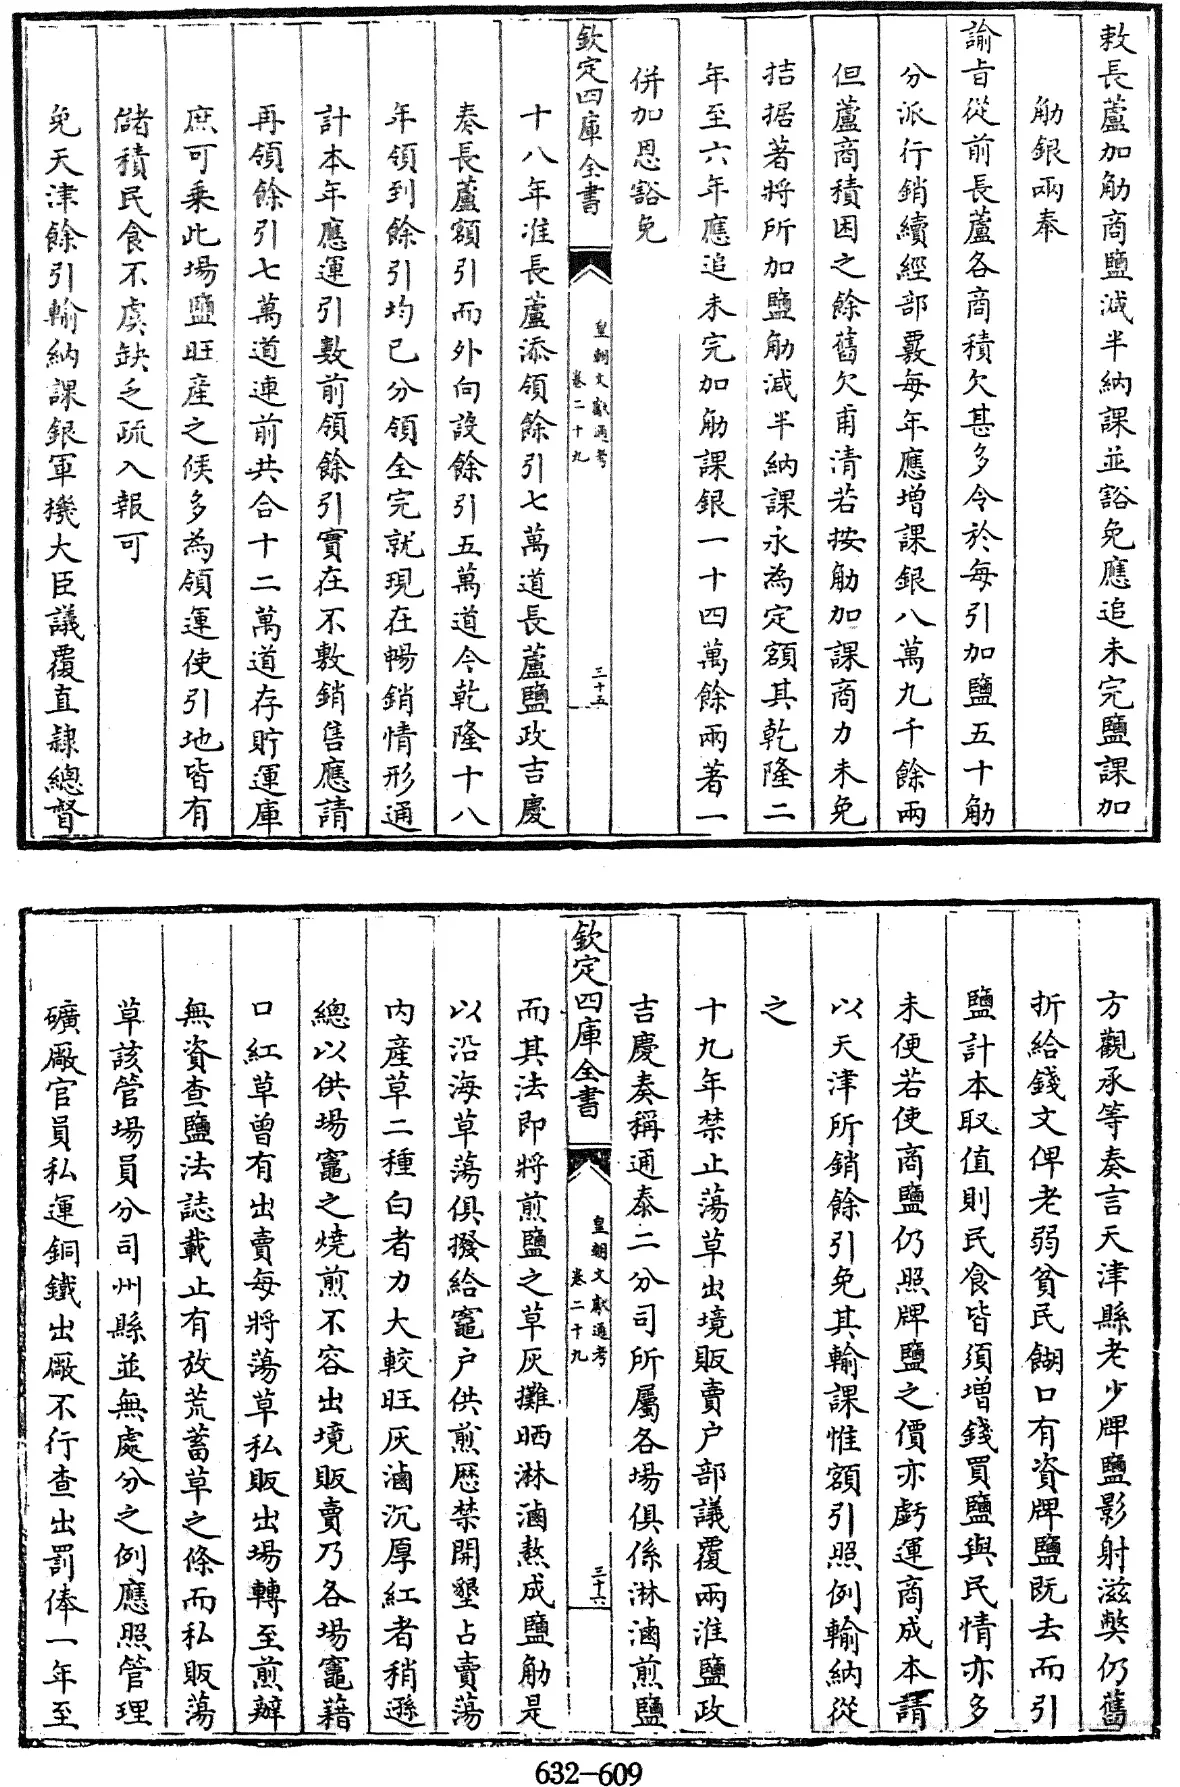 敕長蘆加觔商鹽減半納課並豁免應追未完鹽課加
觔銀兩奉
諭旨從前長蘆各商積欠甚多令於每引加鹽五十觔
分派行銷續經部覈每年應增課銀八萬九千餘兩
但蘆商積困之餘舊欠甫清若按觔加課商力未免
拮据著將所加鹽觔減半納課永為定額其乾隆二
年至六年應追未完加觔課銀一十四萬餘兩著一
併加恩豁免
欽定四庫全書
皇朝文獻通考
卷二十九
三十五
十八年准長蘆添領餘引七萬道長蘆鹽政吉慶
奏長蘆額引而外向設餘引五萬道今乾隆十八
年領到餘引均已分領全完就現在暢銷情形通
計本年應運引數前領餘引實在不敷銷售應請
再領餘引七萬道連前共合十二萬道存貯運庫
庶可乘此場鹽旺産之候多為領運使引地皆有
儲積民食不虞缺乏疏入報可
免天津餘引輸納課銀軍機大臣議覆直隸總督
方觀承等奏言天津縣老少牌鹽影射滋弊仍舊
折給錢文俾老弱貧民餬口有資牌鹽既去而引
鹽計本取值則民食皆須增錢買鹽與民情亦多
未便若使商鹽仍照牌鹽之價亦虧運商成本請
以天津所銷餘引免其輸課惟額引照例輸納從
之
十九年禁止蕩草出境販賣户部議覆兩淮鹽政
吉慶奏稱通泰二分司所屬各場俱係淋滷煎鹽
欽定四庫全書
皇朝文獻通考
卷二十九
三十六
而其法即將煎鹽之草灰攤晒淋滷熬成鹽觔是
以沿海草蕩俱撥給竈户供煎歷禁開墾占賣蕩
内産草二種白者力大較旺灰滷沉厚紅者稍遜
總以供場竈之燒煎不容出境販賣乃各場竈藉
口紅草曾有出賣每將蕩草私販出場轉至煎辦
無資查鹽法誌載止有放荒蓄草之條而私販蕩
草該管場員分司州縣並無處分之例應照管理
礦厰官員私運銅鐵出厰不行查出罰俸一年至
632-609